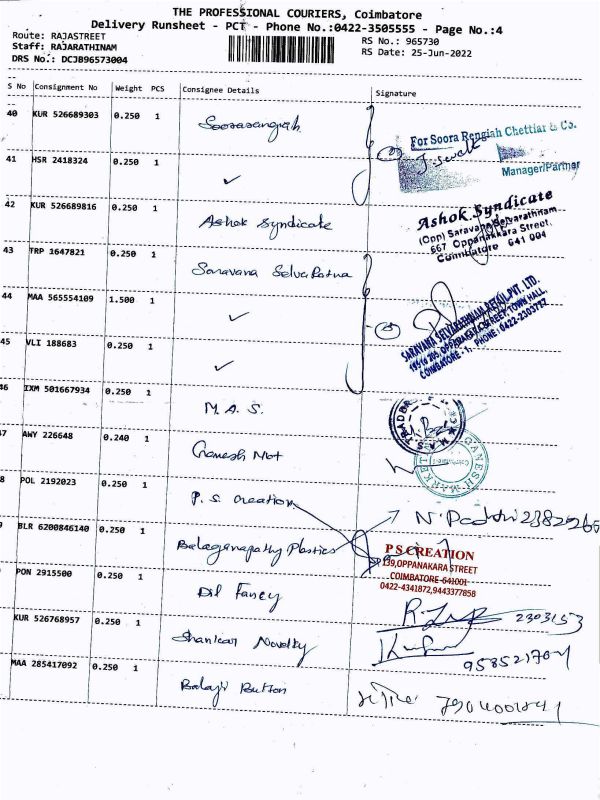 THE PROFESSIONAL COURIERS, Coimbatore
Delivery Runsheet - PCT - Phone No.:0422-3505555 - Page No.:4
Route: RAJASTREET
RS No.: 965730
Staff: RAJARATHINAM
RS Date: 25-Jun-2022
DRS No.: DCJB96573004
S No Consignment No Weight PCS Consignee Details Signature
40 KUR 526689303 0.250 1 Soorasangiah
For Soora Rengiah Chettiar & Co.
Manager/Partner
41 HSR 2418324 0.250 1 ✓
42 KUR 526689816 0.250 1 Ashok Syndicate
Ashok Syndicate
(Opp) Saravana Selvarathnam
667 Oppanakkara Street,
Coimbatore 641 001
43 TRP 1647821 0.250 1 Saravana SelvaRatna
44 MAA 565554109 1.500 1 ✓
SARAVANA SELVARATHNAM RETAIL PVT. LTD.
OPPANAKARA STREET, TOWN HALL,
COIMBATORE - 1. PHONE: 0422-2303727
45 VLI 188683 0.250 1 ✓
46 IXM 501667934 0.250 1 M.A.S.
47 AWY 226648 0.240 1 Ganesh Mat
GANESH MARKET
8 POL 2192023 0.250 1 P.S. Creation
9 BLR 6200846140 0.250 1 Balaganapathy Plastics
P S CREATION
139,OPPANAKARA STREET
COIMBATORE-641001
0422-4341872,9443377858
PON 2915500 0.250 1 Dil Fancy
2303153
KUR 526768957 0.250 1 Shankar Novelty
MAA 285417092 0.250 1 Balaji Button